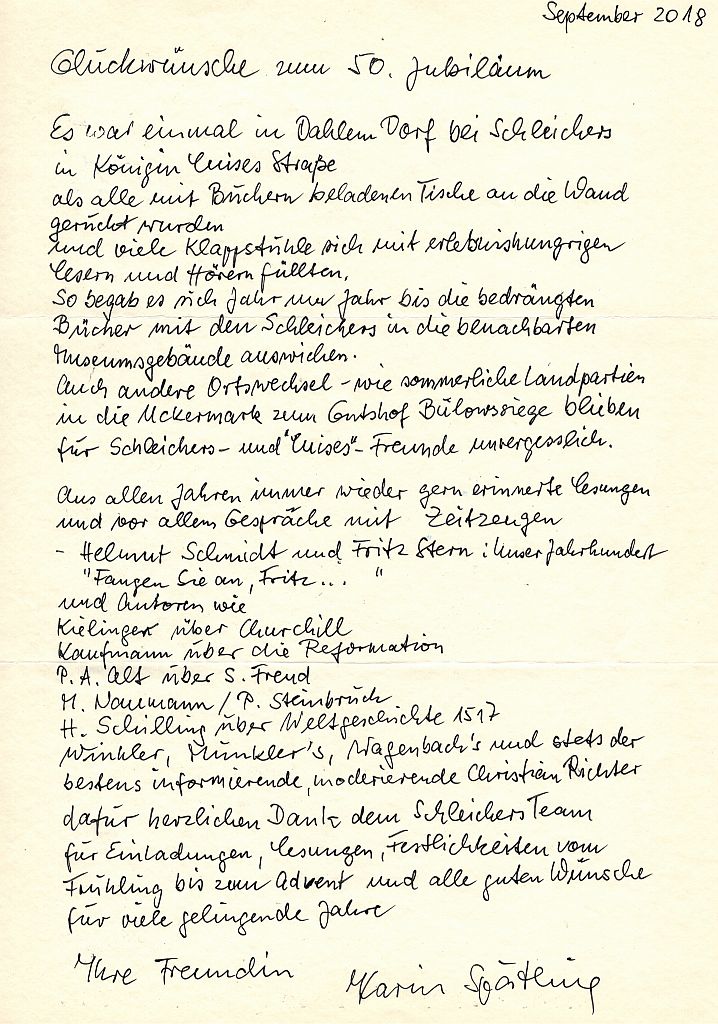 September 2018
Glückwünsche zum 50. Jubiläum
Es war einmal in Dahlem Dorf bei Schleichers
in Königin Luises Straße
als alle mit Büchern beladenen Tische an die Wand
gerückt wurden
und viele Klappstühle sich mit erlebnishungrigen
Lesern und Hörern füllten.
So begab es sich Jahr um Jahr bis die bedrängten
Bücher mit den Schleichers in die benachbarten
Museumsgebäude auswichen.
Auch andere Ortswechsel - wie sommerliche Landpartien
in die Uckermark zum Gutshof Bülowssiege blieben
für Schleichers- und "Luises"- Freunde unvergesslich.
Aus allen Jahren immer wieder gern erinnerte Lesungen
und vor allem Gespräche mit Zeitzeugen
- Helmut Schmidt und Fritz Stern: Unser Jahrhundert
"Fangen Sie an, Fritz... "
und Autoren wie
Kielinger über Churchill
Kaufmann über die Reformation
P. A. Alt über S. Freud
M. Naumann / P. Steinbrück
H. Schilling über Weltgeschichte 1517
Winkler, Münkler's, Wagenbach's und stets der
bestens informierende, moderierende Christian Richter
dafür herzlichen Dank dem Schleichers Team
für Einladungen, Lesungen, Festlichkeiten vom
Frühling bis zum Advent und alle guten Wünsche
für viele gelingende Jahre
Ihre Freundin Karin